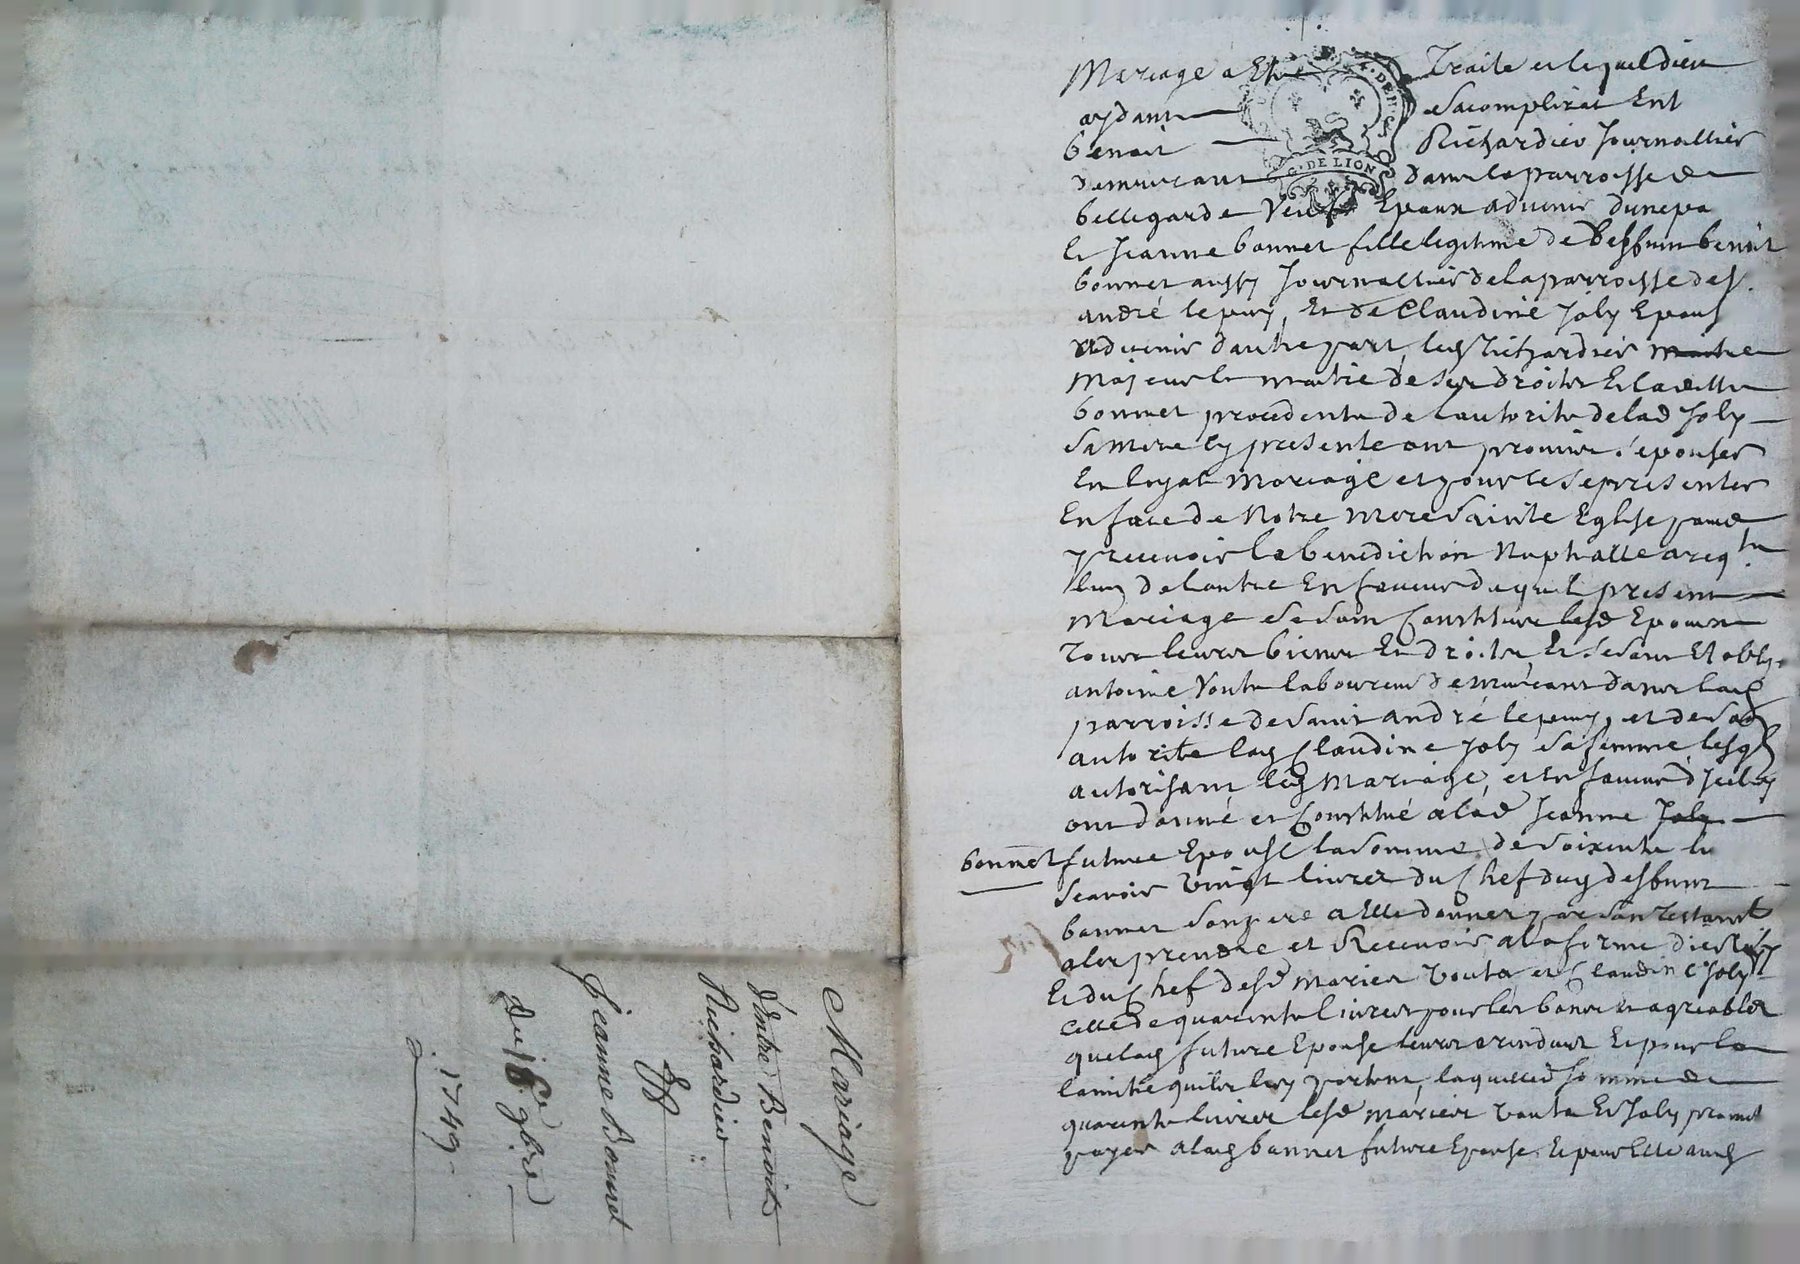 Mariage a Ete Traite et lequel dieu
aydant sacomplirat Ent
benoit Richardier Journallier
demeurant dans la parroisse de
bellegarde Veuf Epoux advenir dune pa
Et Jeanne bonnet fille legitime de deffunt benoit
bonnet aussy Journallier de la parroisse de st
andré le puy, Et de Claudine Joly Epous
advenir dautre part, led Richardier maitre
Majeur et maitre de ses droits Et laditte
bonnet procedente de lautorite de lad Joly
sa mere cy presente ont promis sepouser
En loyal Mariage et pour ce se presenter
En face de Notre Mere Sainte Eglise pour
y recevoir la benediction Nuptialle a reqte
lun de lautre En faveur duquel present
Mariage se sont Constitués lesd Epoux
Tous leurs biens Et droits, Et se sont Etably
antoine Vouta laboureur demeurant dans lad
parroisse de saint andré le puy, et de son
autorite lad Claudine Joly sa femme lesqls
autorisant led Mariage, et En faveur dicelluy
ont donné et Constitué a lad Jeanne Joly
bonnet future Epouse la somme de soixente l
scavoir vingt livres du Chef dud deffunt
bonnet son pere a Elle donnes par son Testamt
a les prendre et Recevoir a la forme dicelluy
Et du Chef desd mariés vouta et Claudine Joly
celle de quarente livres pour les bons et agreables
que lad future Epouse leurs a rendus Et pour
lamitié quils luy portent, laquelle somme de
quarente livres lesd mariés vouta Et Joly promet
payer a lad bonnet future Epouse Et pour Elle aud
Mariage
d'entre Benoit
Richardier
Et
Jeanne Bonnet
Du 16e 9bre
1749
G. DE LION